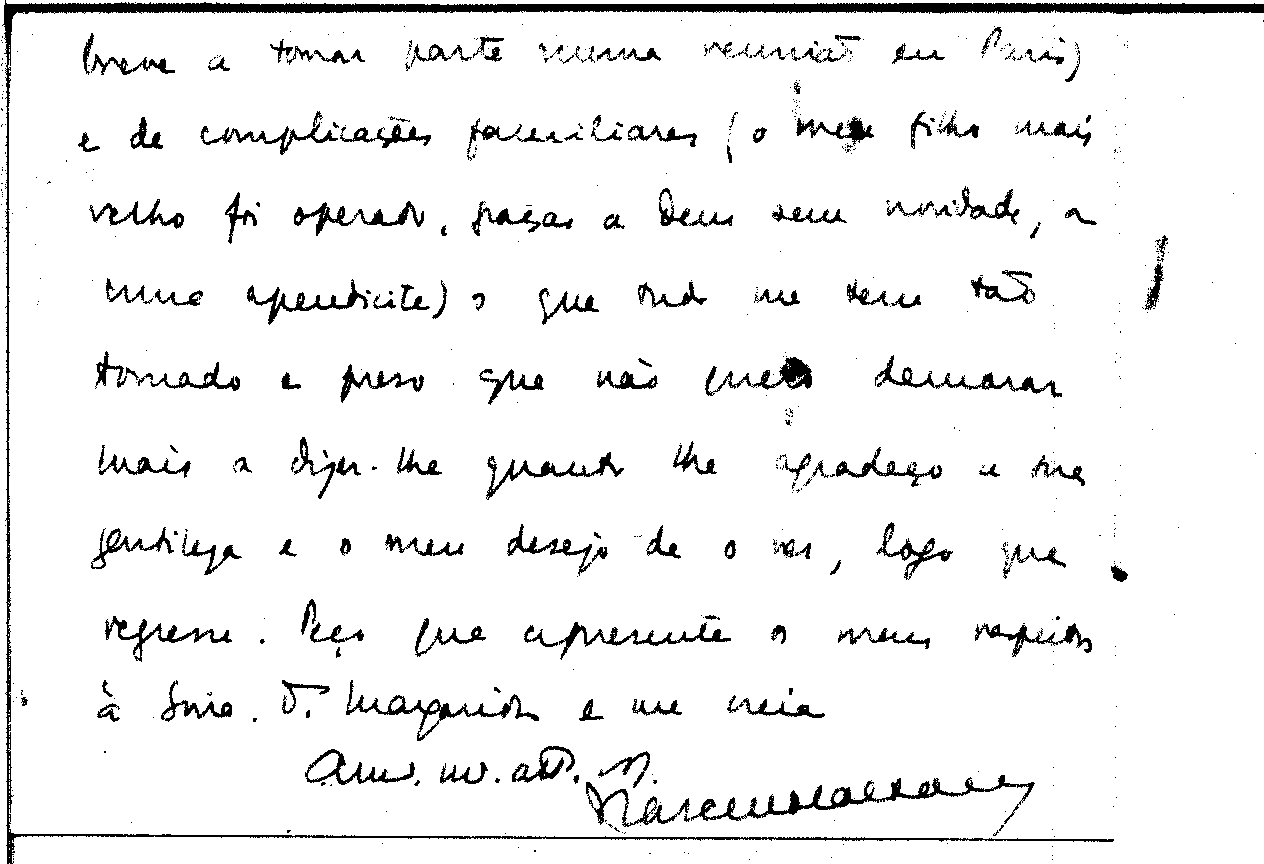 breve a tomar parte numa reunião em Paris)
e de complicações familiares (o meu filho mais
velho foi operado, graças a Deus sem novidade, a
uma apendicite) o que tudo me tem tão
tomado e preso que não quero demorar
mais a dizer-lhe quanto lhe agradeço a sua
gentileza e o meu desejo de o ver, logo que
regresse. Peço que apresente os meus respeitos
à Snra. D. Margarida e me creia
Am. m. att.